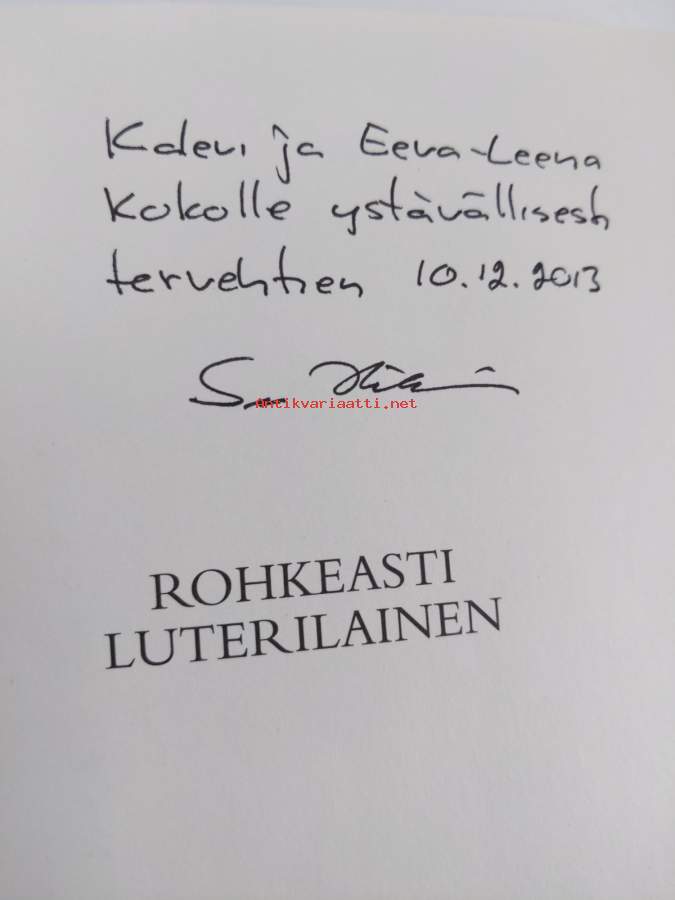 Kalevi ja Eeva-Leena
Kokolle ystävällisesti
tervehtien 10.12.2013
Antikvariaatti.net
ROHKEASTI
LUTERILAINEN